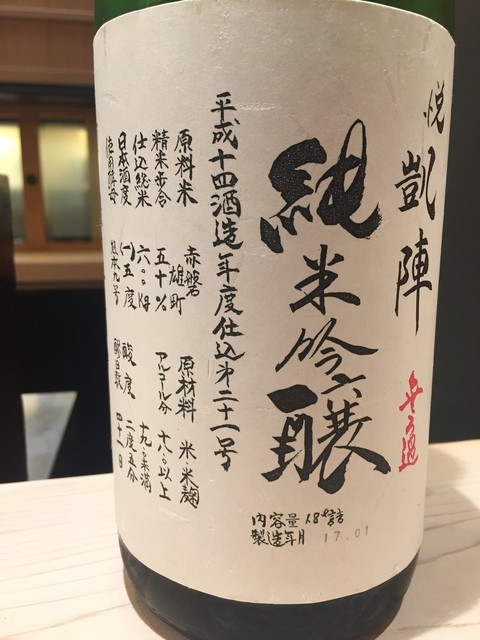 悦 凱陣
無ろ過
純米吟醸
平成十四酒造年度仕込第二十一号
原料米 赤磐雄町
原材料 米・米麹
精米歩合 五十%
アルコール分 十八°以上
十九°未満
仕込総米 六〇〇kg
日本酒度 (一)五度
酸度 二度五分
熊本九号
四十一日
内容量 1.8ℓ詰
製造年月 17.01